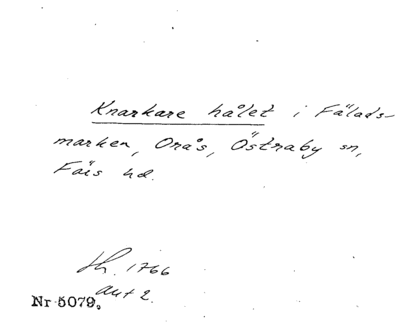 Knarkare hålet i Fälads-
marken, Orås, Östraby sn,
Färs hd.
H. 1766
akt 2.
Nr 5079.